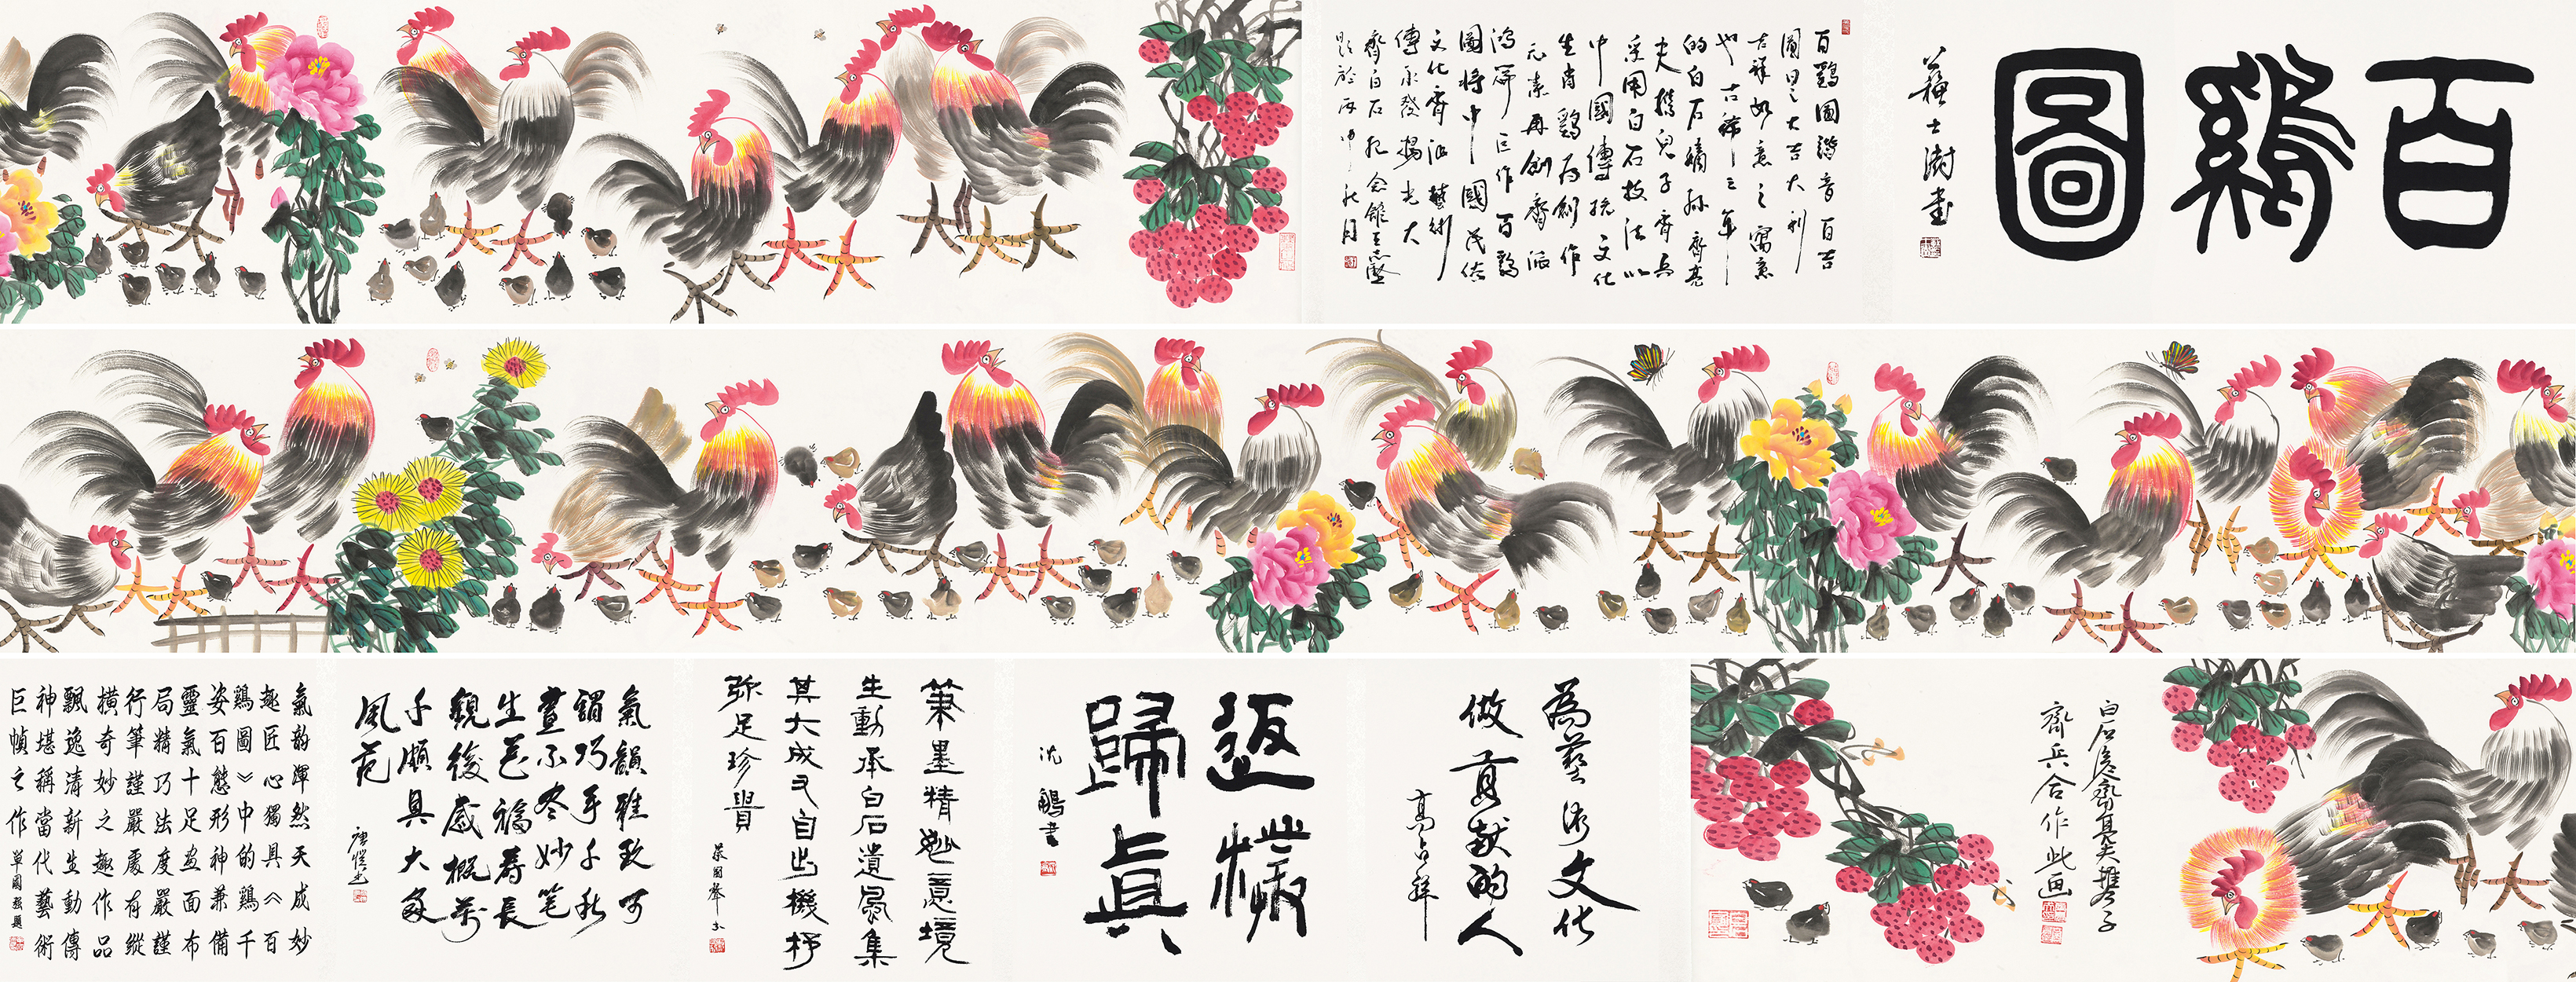 百鷄圖
蘇士澍書
百鷄圖諧音百吉
圖思之大吉大利
吉祥如意之寓意
也古稀之年
的白石嫡孫齊亮
夫攜兒子齊兵
采用白石技法以
中國傳統文化
生肖鷄為創作
元素再創齊派
鴻篇巨作百鷄
圖將中國茂佳
文化齊派藝術
傳承發揚光大
齊白石紀念館王志堅
題於丙申秋月
白石後裔
齊兵合作此画
為藝術文化
做貢獻的人
高占祥
返樸
歸真
沈鵬書
筆墨精妙意境
生動承白石遺風集
其大成又自出機杼
弥足珍貴
氣韻雅致可
謂巧手千秋
畫不盡妙笔
生花福壽長
觀後感概萬
千頗具大家
風范
氣韵渾然天成妙
趣匠心獨具《百
鷄圖》中的鷄千
姿百態形神兼備
靈氣十足画面布
局精巧法度嚴謹
行筆謹嚴處有縱
橫奇妙之趣作品
飄逸清新生動傳
神堪稱當代藝術
巨幀之作
單國強題